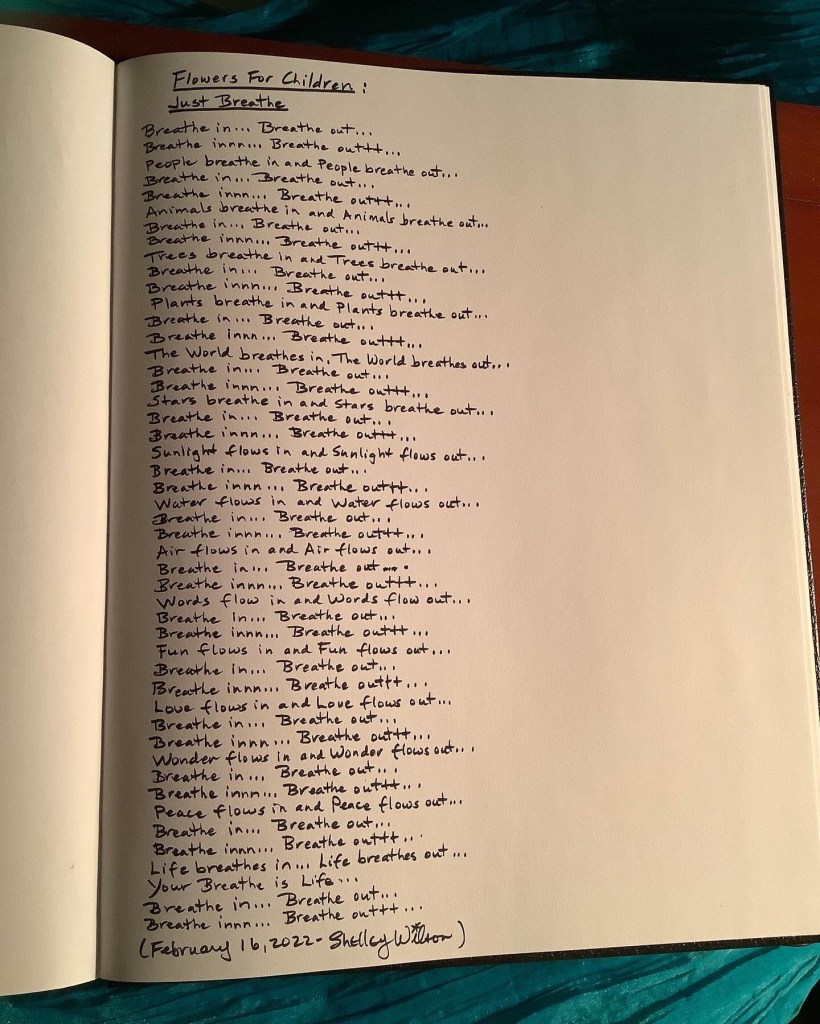 Flowers For Children:
Just Breathe
Breathe in... Breathe out...
Breathe innn... Breathe outtt...
People breathe in and People breathe out...
Breathe in... Breathe out...
Breathe innn... Breathe outtt...
Animals breathe in and Animals breathe out...
Breathe in... Breathe out...
Breathe innn... Breathe outtt...
Trees breathe in and Trees breathe out...
Breathe in... Breathe out...
Breathe innn... Breathe outtt...
Plants breathe in and Plants breathe out...
Breathe in... Breathe out...
Breathe innn... Breathe outtt...
The World breathes in, The World breathes out...
Breathe in... Breathe out...
Breathe innn... Breathe outtt...
Stars breathe in and Stars breathe out...
Breathe in... Breathe out...
Breathe innn... Breathe outtt...
Sunlight flows in and Sunlight flows out...
Breathe in... Breathe out...
Breathe innn... Breathe outtt...
Water flows in and Water flows out...
Breathe in... Breathe out...
Breathe innn... Breathe outtt...
Air flows in and Air flows out...
Breathe in... Breathe out...
Breathe innn... Breathe outtt...
Words flow in and Words flow out...
Breathe in... Breathe out...
Breathe innn... Breathe outtt...
Fun flows in and Fun flows out...
Breathe in... Breathe out...
Breathe innn... Breathe outtt...
Love flows in and Love flows out...
Breathe in... Breathe out...
Breathe innn... Breathe outtt...
Wonder flows in and Wonder flows out...
Breathe in... Breathe out...
Breathe innn... Breathe outtt...
Peace flows in and Peace flows out...
Breathe in... Breathe out...
Breathe innn... Breathe outtt...
Life breathes in... Life breathes out...
Your Breathe is Life...
Breathe in... Breathe out...
Breathe innn... Breathe outtt...
(February 16, 2022 - Shelley Wilson)